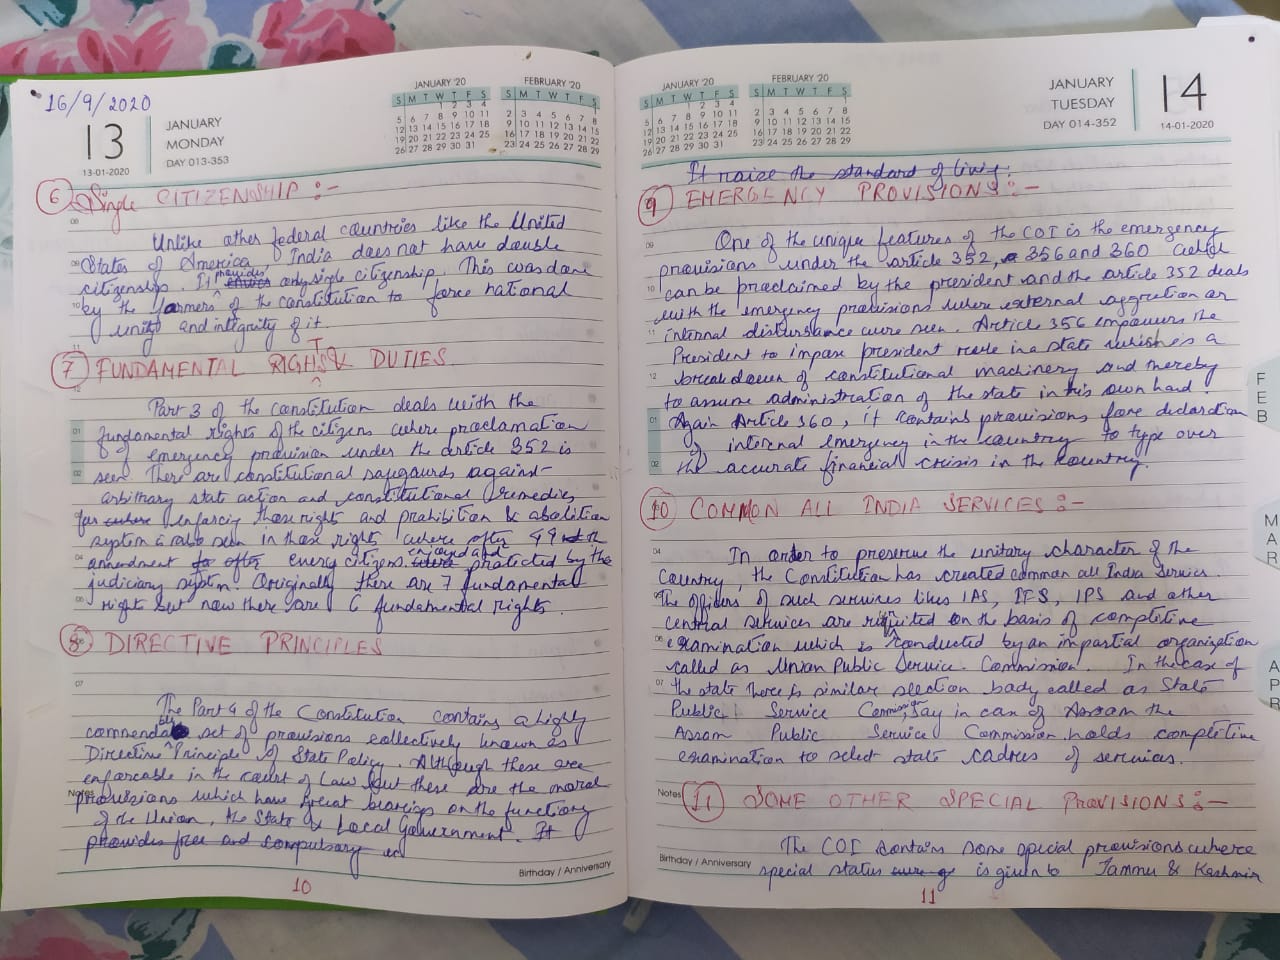 16/9/2020
13
JANUARY
MONDAY
DAY 013-353
13-01-2020
JANUARY '20
S M T W T F S
1 2 3 4
5 6 7 8 9 10 11
12 13 14 15 16 17 18
19 20 21 22 23 24 25
26 27 28 29 30 31
FEBRUARY '20
S M T W T F S
1
2 3 4 5 6 7 8
9 10 11 12 13 14 15
16 17 18 19 20 21 22
23 24 25 26 27 28 29
6 Single CITIZENSHIP :-
Unlike other federal countries like the United
States of America, India does not have double
citizenship. It provides only single citizenship. This was done
by the farmers of the constitution to force national
unity and integrity of it.
7 FUNDAMENTAL RIGHTS & DUTIES
Part 3 of the constitution deals with the
fundamental rights of the citizens where proclamation
of emergency provision under the article 352 is
seen. There are constitutional safegaurds against
arbithary state action and constitutional remedies
for enforcing those rights and prohibition & abolition
system is also seen in these rights where after 44th
amendment every citizens enjoyed and protected by the
judiciary system. Originally there are 7 fundamental
rights but now there are 6 fundamental rights.
8 DIRECTIVE PRINCIPLES
The Part 4 of the Constitution contains a highly
commendable set of provisions collectively known as
Directive Principle of State Policy. Although these are
enforcable in the court of Law but these are the moral
Notes
provisions which have great bearings on the functiong
of the Union, the State & Local Government. It
provides free and compulsary
Birthday / Anniversary
10
JANUARY '20
S M T W T F S
1 2 3 4
5 6 7 8 9 10 11
12 13 14 15 16 17 18
19 20 21 22 23 24 25
26 27 28 29 30 31
FEBRUARY '20
S M T W T F S
1
2 3 4 5 6 7 8
9 10 11 12 13 14 15
16 17 18 19 20 21 22
23 24 25 26 27 28 29
JANUARY
TUESDAY
DAY 014-352
14
14-01-2020
It raise the standard of living.
9 EMERGENCY PROVISIONS :-
One of the unique features of the COI is the emergency
provisions under the article 352, 356 and 360 which
can be proclaimed by the president and the article 352 deals
with the emergency provisions where external aggretion or
internal disturbance were seen. Article 356 empowers the
President to impose president rule in a state which is a
breakdown of constitutional machinery and thereby
to assume administration of the state in his own hand.
Again Article 360, it contains provisions fore declaration
of internal emergency in the country to type over
the accurate financial crisis in the country.
10 COMMON ALL INDIA SERVICES :-
In order to preserve the unitary character of the
Country, the Constitution has created common all India Services.
The officers of such services likes IAS, IFS, IPS and other
central services are on the basis of completive
examination which is conducted by an impartial organization
called as Union Public Service Commission. In the case of
the state there is similar selection body called as State
Public Service Commission, Say in case of Assam the
Assam Public Service Commission holds completive
examination to select state cadres of services.
Notes
11 SOME OTHER SPECIAL PROVISIONS :-
The COI contains some special provisions where
special status is given to Jammu & Kashmir
Birthday / Anniversary
11
FEB
MAR
APR